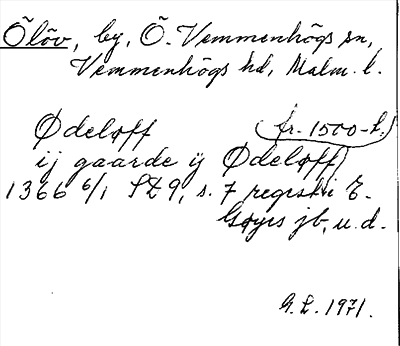 Ölöv, by, Ö. Vemmenhögs sn,
Vemmenhögs hd, Malm. l.
Ødeløff (fr. 1500-t.)
ij gaarde ij Ødeløff
1366 6/1 SD 9, s. 7 regist i E.
jb, u.d.
G. L. 1971.